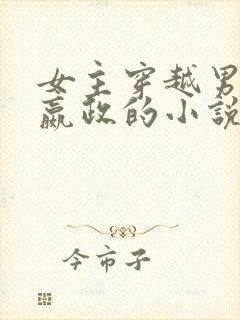 女主穿越男
嬴政的小说
今市子